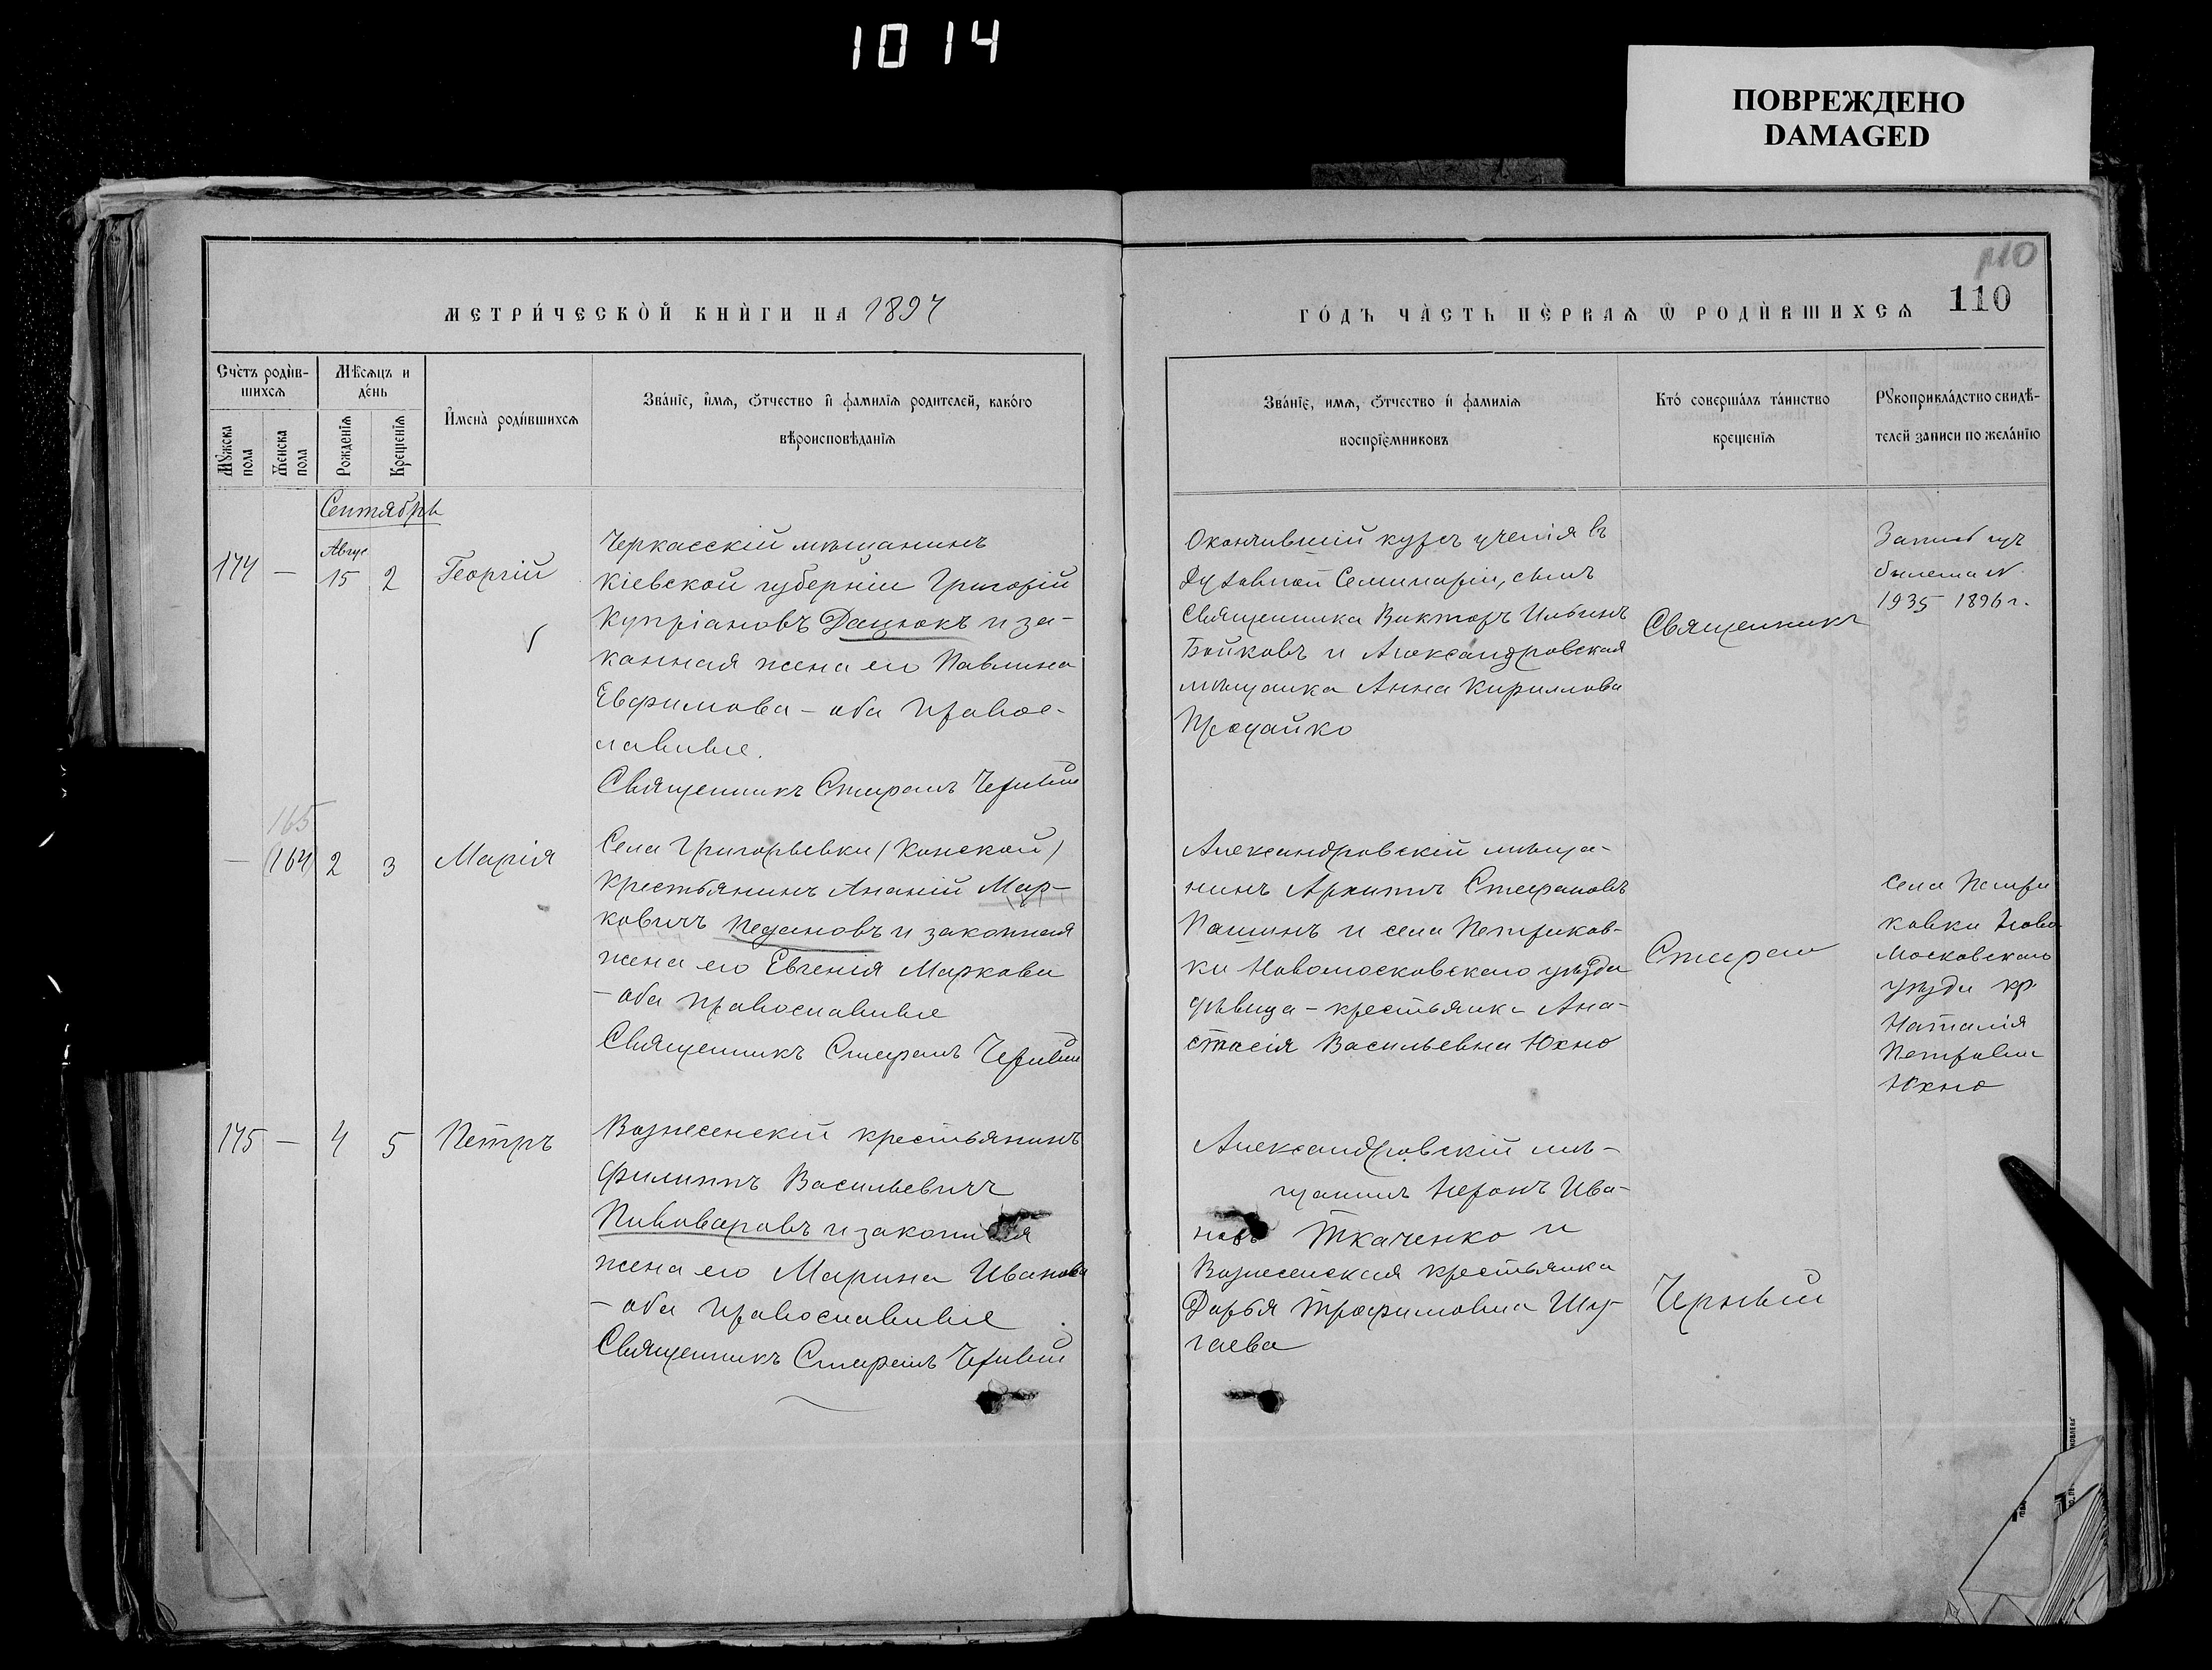 1014
ПОВРЕЖДЕНО
DAMAGED
110
МЕТРИ́ЧЕСКОЙ КНИ́ГИ НА 1897
ГО́ДЪ ЧА́СТЬ ПЕ́РВАѦ Ѡ РОДИ́ВШИХСѦ 110
Сче́тъ роди́в-
шихсѧ
Мѣ́сѧцъ и
де́нь
Мꙋ́жска
пола
Же́нска
пола
Рождéнїѧ
Крещéнїѧ
И҆мена̀ роди́вшихсѧ
Зва́нїе, и҆мѧ, ѻ҆́тчество и҆ фамилїѧ родителей, како́го
вѣроисповѣданїѧ
Зва́нїе, имѧ, ѻ҆́тчество и҆ фамилїѧ
воспрїе́мниковъ
Кто̀ соверша́лъ та́инство
креще́нїѧ
Рꙋкоприкла́дство свидѣ́-
телей записи по жела́нїю
Сентябрь
174
—
Авгус
15
2
Георгій
Черкасскій мѣщанинъ
Кіевской губерніи Григорій
Купріановъ Дацюкъ и за-
конная жена его Павлина
Евфимова – оба правос-
лавные.
Священникъ Стефанъ Черный
Окончившій курсъ ученія въ
Духовной Семинаріи, сынъ
Священника Викторъ Ильинъ
Бойковъ и Александровская
мѣщанка Анна Кириллова
Священникъ
билета N
1935 1896 г.
165
—
164
2
3
Марія
Села Григорьевки (Конской)
крестьянинъ Ананій Мар-
ковичъ Педановъ и законная
жена его Евгенія Маркова
– оба православные
Священникъ Стефанъ Черный
Александровскій мѣща-
нинъ Архипъ Стефановъ
Пашинъ и села Петриков-
ки Новомосковскаго уѣзда
дѣвица – крестьянка Ана-
стасія Васильевна Юхно
Стефан
Села Петри
ковки Ново
Московскаго
уѣзда кр.
Наталія
Петровна
Юхно
175
—
4
5
Петръ
Вознесенскій крестьянинъ
Филиппъ Васильевичъ
Пивоваровъ и законная
жена его Марина Иванова
– оба православные
Священникъ Стефанъ Черный
Александровскій мѣ-
щанинъ Неронъ Ива-
новъ Ткаченко и
Вознесенская крестьянка
Дарья Трофимовна Шу-
гаева
Черный